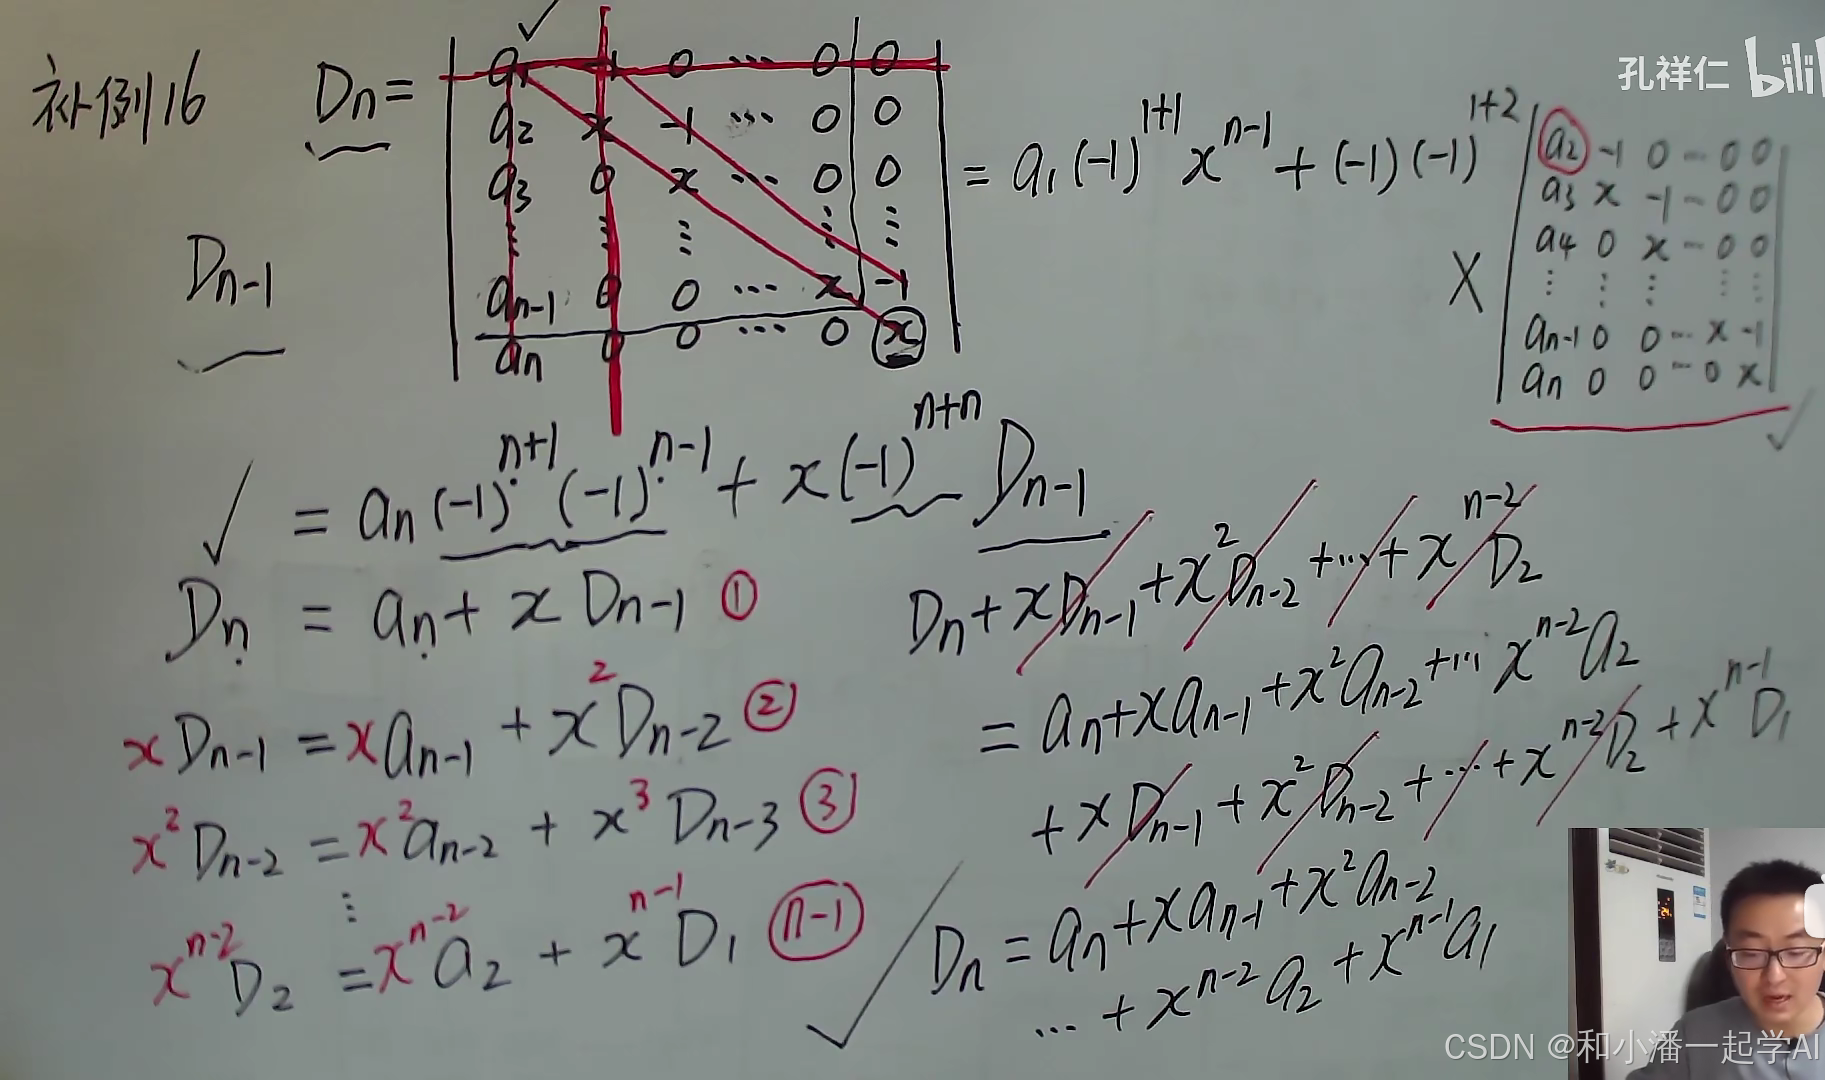 孔祥仁 bili
补例16 Dn=
a1 -1 0 ... 0 0
a2 x -1 ... 0 0
a3 0 x ... 0 0
⋮ ⋮ ⋮ ⋮ ⋮
an-1 0 0 ... x -1
an 0 0 ... 0 x
= a1(-1)^{1+1} x^{n-1} + (-1)(-1)^{1+2}
X
a2 -1 0 ... 0 0
a3 x -1 ... 0 0
a4 0 x ... 0 0
⋮ ⋮ ⋮ ⋮ ⋮
an-1 0 0 ... x -1
an 0 0 ... 0 x
Dn-1
= an(-1)^{n+1}(-1)^{n-1} + x(-1)^{n+n} Dn-1
Dn = an + xDn-1 ①
xDn-1 = xan-1 + x^2Dn-2 ②
x^2Dn-2 = x^2an-2 + x^3Dn-3 ③
⋮
x^{n-2}D2 = x^{n-2}a2 + x^{n-1}D1 (n-1)
Dn + xDn-1 + x^2Dn-2 + ... + x^{n-2}D2
= an + xan-1 + x^2an-2 + ... x^{n-2}a2
+ xDn-1 + x^2Dn-2 + ... + x^{n-2}D2 + x^{n-1}D1
Dn = an + xan-1 + x^2an-2
... + x^{n-2}a2 + x^{n-1}a1
CSDN @和小潘一起学AI